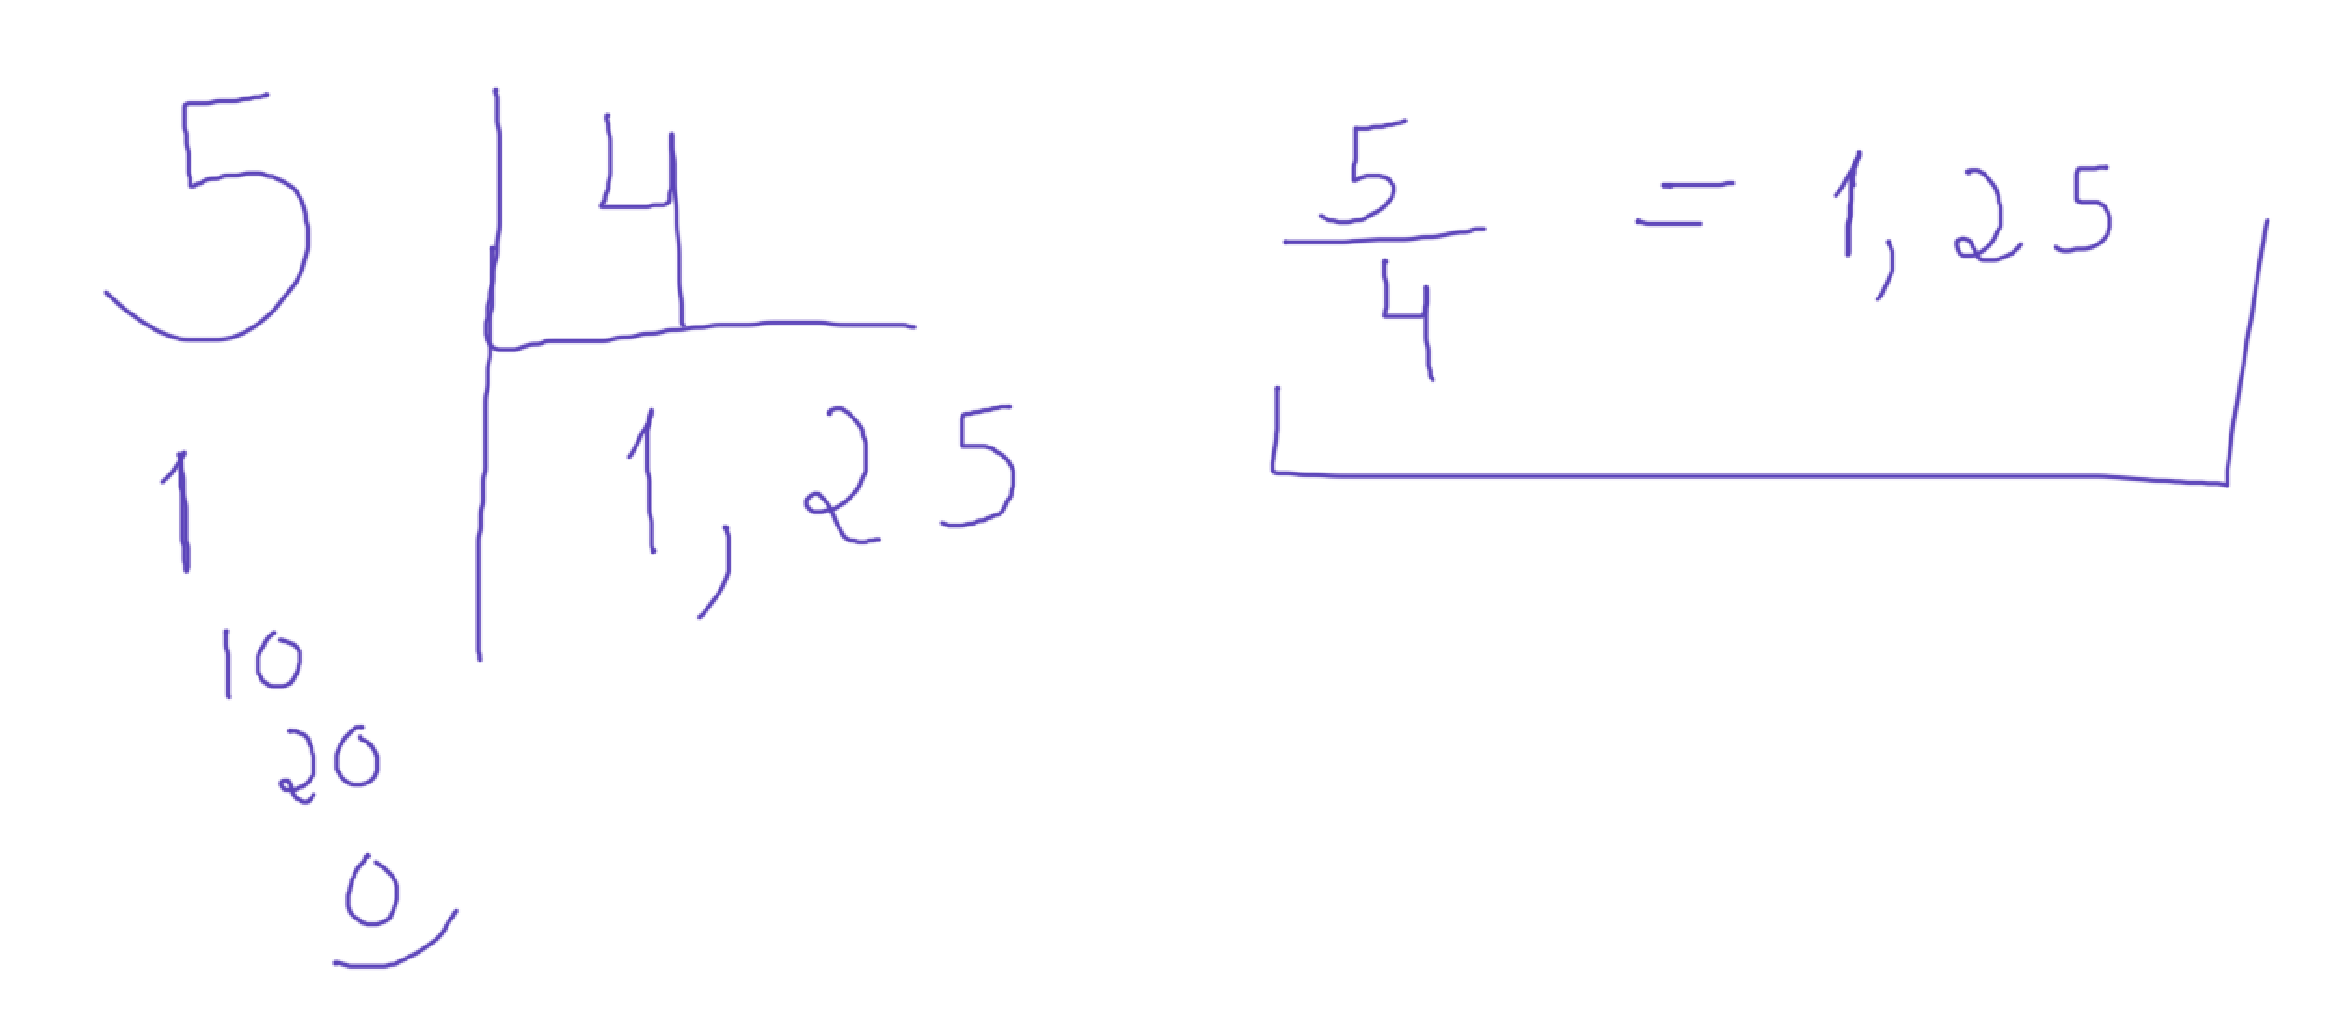 5 4
1 1,25
10
20
0
5/4 = 1,25